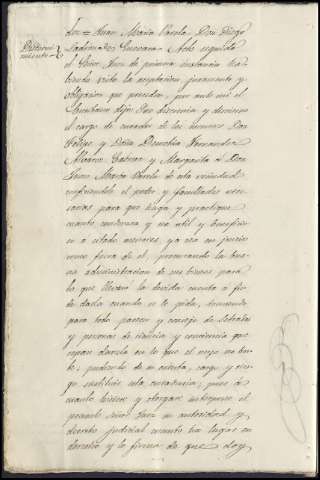 Juan María Varela = Don Diego
Ladron de Guevara = Acto seguido
Discerni
miento
el Señor Juez de primera instancia ha
biendo visto la aceptacion juramento y
obligacion que preceden, por ante mi el
Escribano dijo: Que discernia y discernio
el cargo de curador de los menores Don
Felipe y Doña Fernandez
Alvaro y Margarita á Don
Juan María Varela de esta vecindad
confiriendole el poder y facultades nece
sarias para que haga y practique
cuanto convenga y sea util y beneficio
so a citados menores, ya sea en juicio
como fuera de el, procurando la bue
na administracion de sus bienes para
lo que llevara la devida cuenta á fin
de darla cuando se le pida, tomando
para todo parecer y consejo de Letrados
y personas de ciencia y conciencia que
sepan darselo en lo que el mejor no
be, pudiendo de su cuenta, cargo y ries
go substituir esta curaduria; pues á
cuanto hiciere y otorgare interpone el
presente Señor Juez su autoridad y
decreto judicial cuanto ha lugar en
derecho y lo firma de que doy